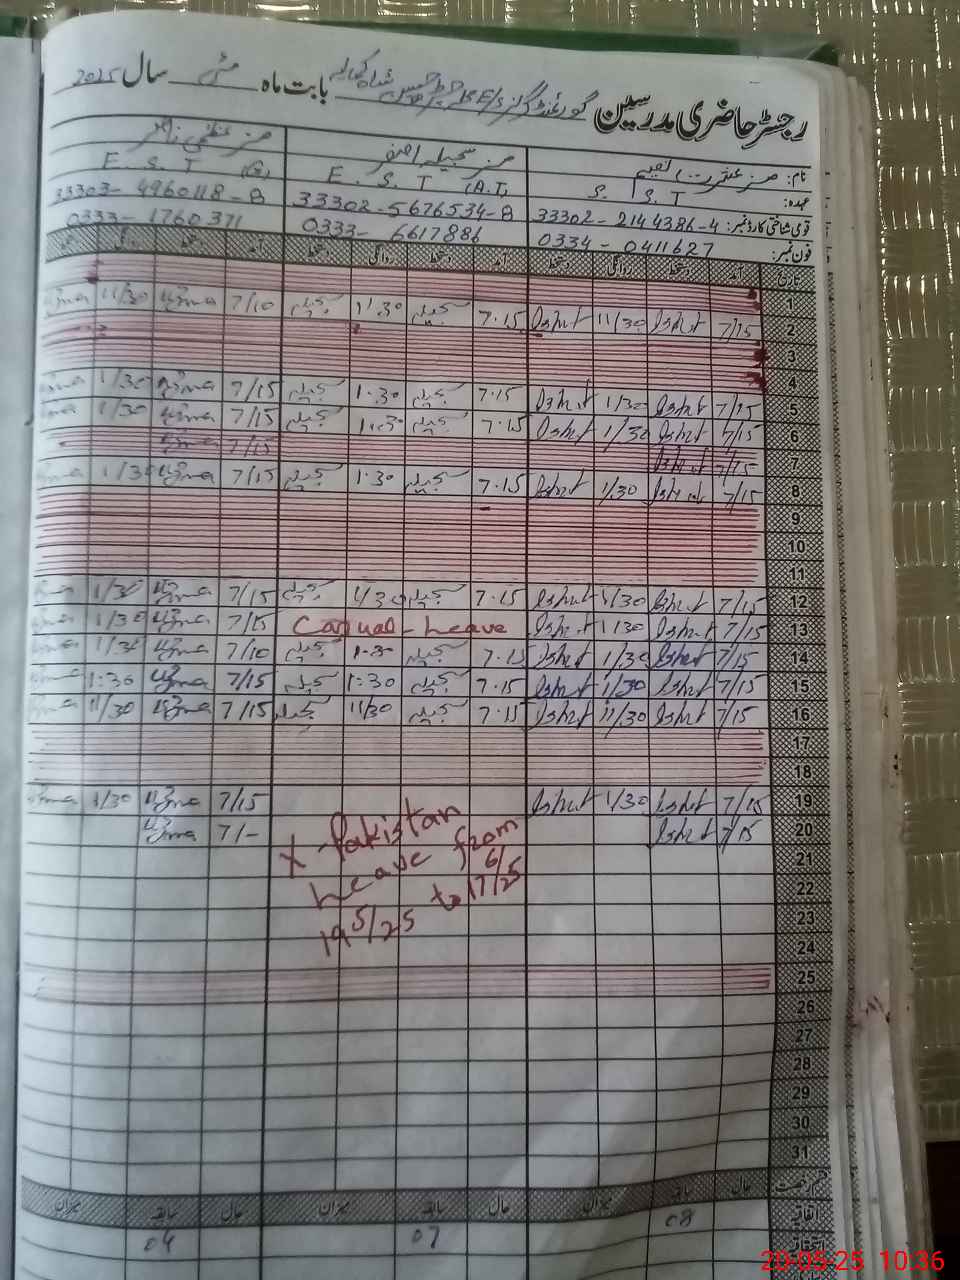 رجسٹر حاضری مدرسین گورنمنٹ گرلز بابت ماہ مئی سال 2025
نام: مسز عشرت نسیم مسز عظمیٰ
عہدہ: S. S. T E. S. T (A.T) E. S. T
قومی شناختی کارڈ نمبر: 33302-2144386-4 33302-5676534-8 33303-4960118-8
فون نمبر: 0334-0411627 0333-6617886 0333-1760371
تاریخ آمد دستخط روانگی دستخط آمد دستخط روانگی دستخط آمد دستخط روانگی دستخط
1
2 7/15 Ishrt 11/30 Ishrt 7.15 11.30 7/10 uzma 11/30 uzma
3
4
5 7/15 Ishrt 1/30 Ishrt 7.15 1.30 7/15 uzma 1/30 uzma
6 7/15 Ishrt 1/30 Ishrt 7.15 1.30 7/15 uzma 1/30 uzma
7 7/15 Ishrt 7/15 uzma
8 7/15 Ishrt 1/30 Ishrt 7.15 1.30 7/15 uzma 1/30 uzma
9
10
11
12 7/15 Ishrt 1/30 Ishrt 7.15 1/30 7/15 uzma 1/30
13 7/15 Ishrt 1/30 Ishrt Casual Leave 7/15 uzma 1/30
14 7/15 Ishrt 1/30 Ishrt 7.15 1.30 7/10 uzma 1/30
15 7/15 Ishrt 1/30 Ishrt 7.15 1:30 7/15 uzma 1:30
16 7/15 Ishrt 11/30 Ishrt 7.15 11/30 7/15 uzma 11/30
17
18
19 7/15 Ishrt 1/30 Ishrt 7/15 uzma 1/30 uzma
20 7/15 Ishrt 7/- uzma
X-Pakistan
Leave from
19 5/25 to 17 6/25
21
22
23
24
25
26
27
28
29
30
31
قسم رخصت حال سابقہ میزان حال سابقہ میزان حال سابقہ میزان
اتفاقیہ 08 07 04
استحقاقی
20-05-25 10:36